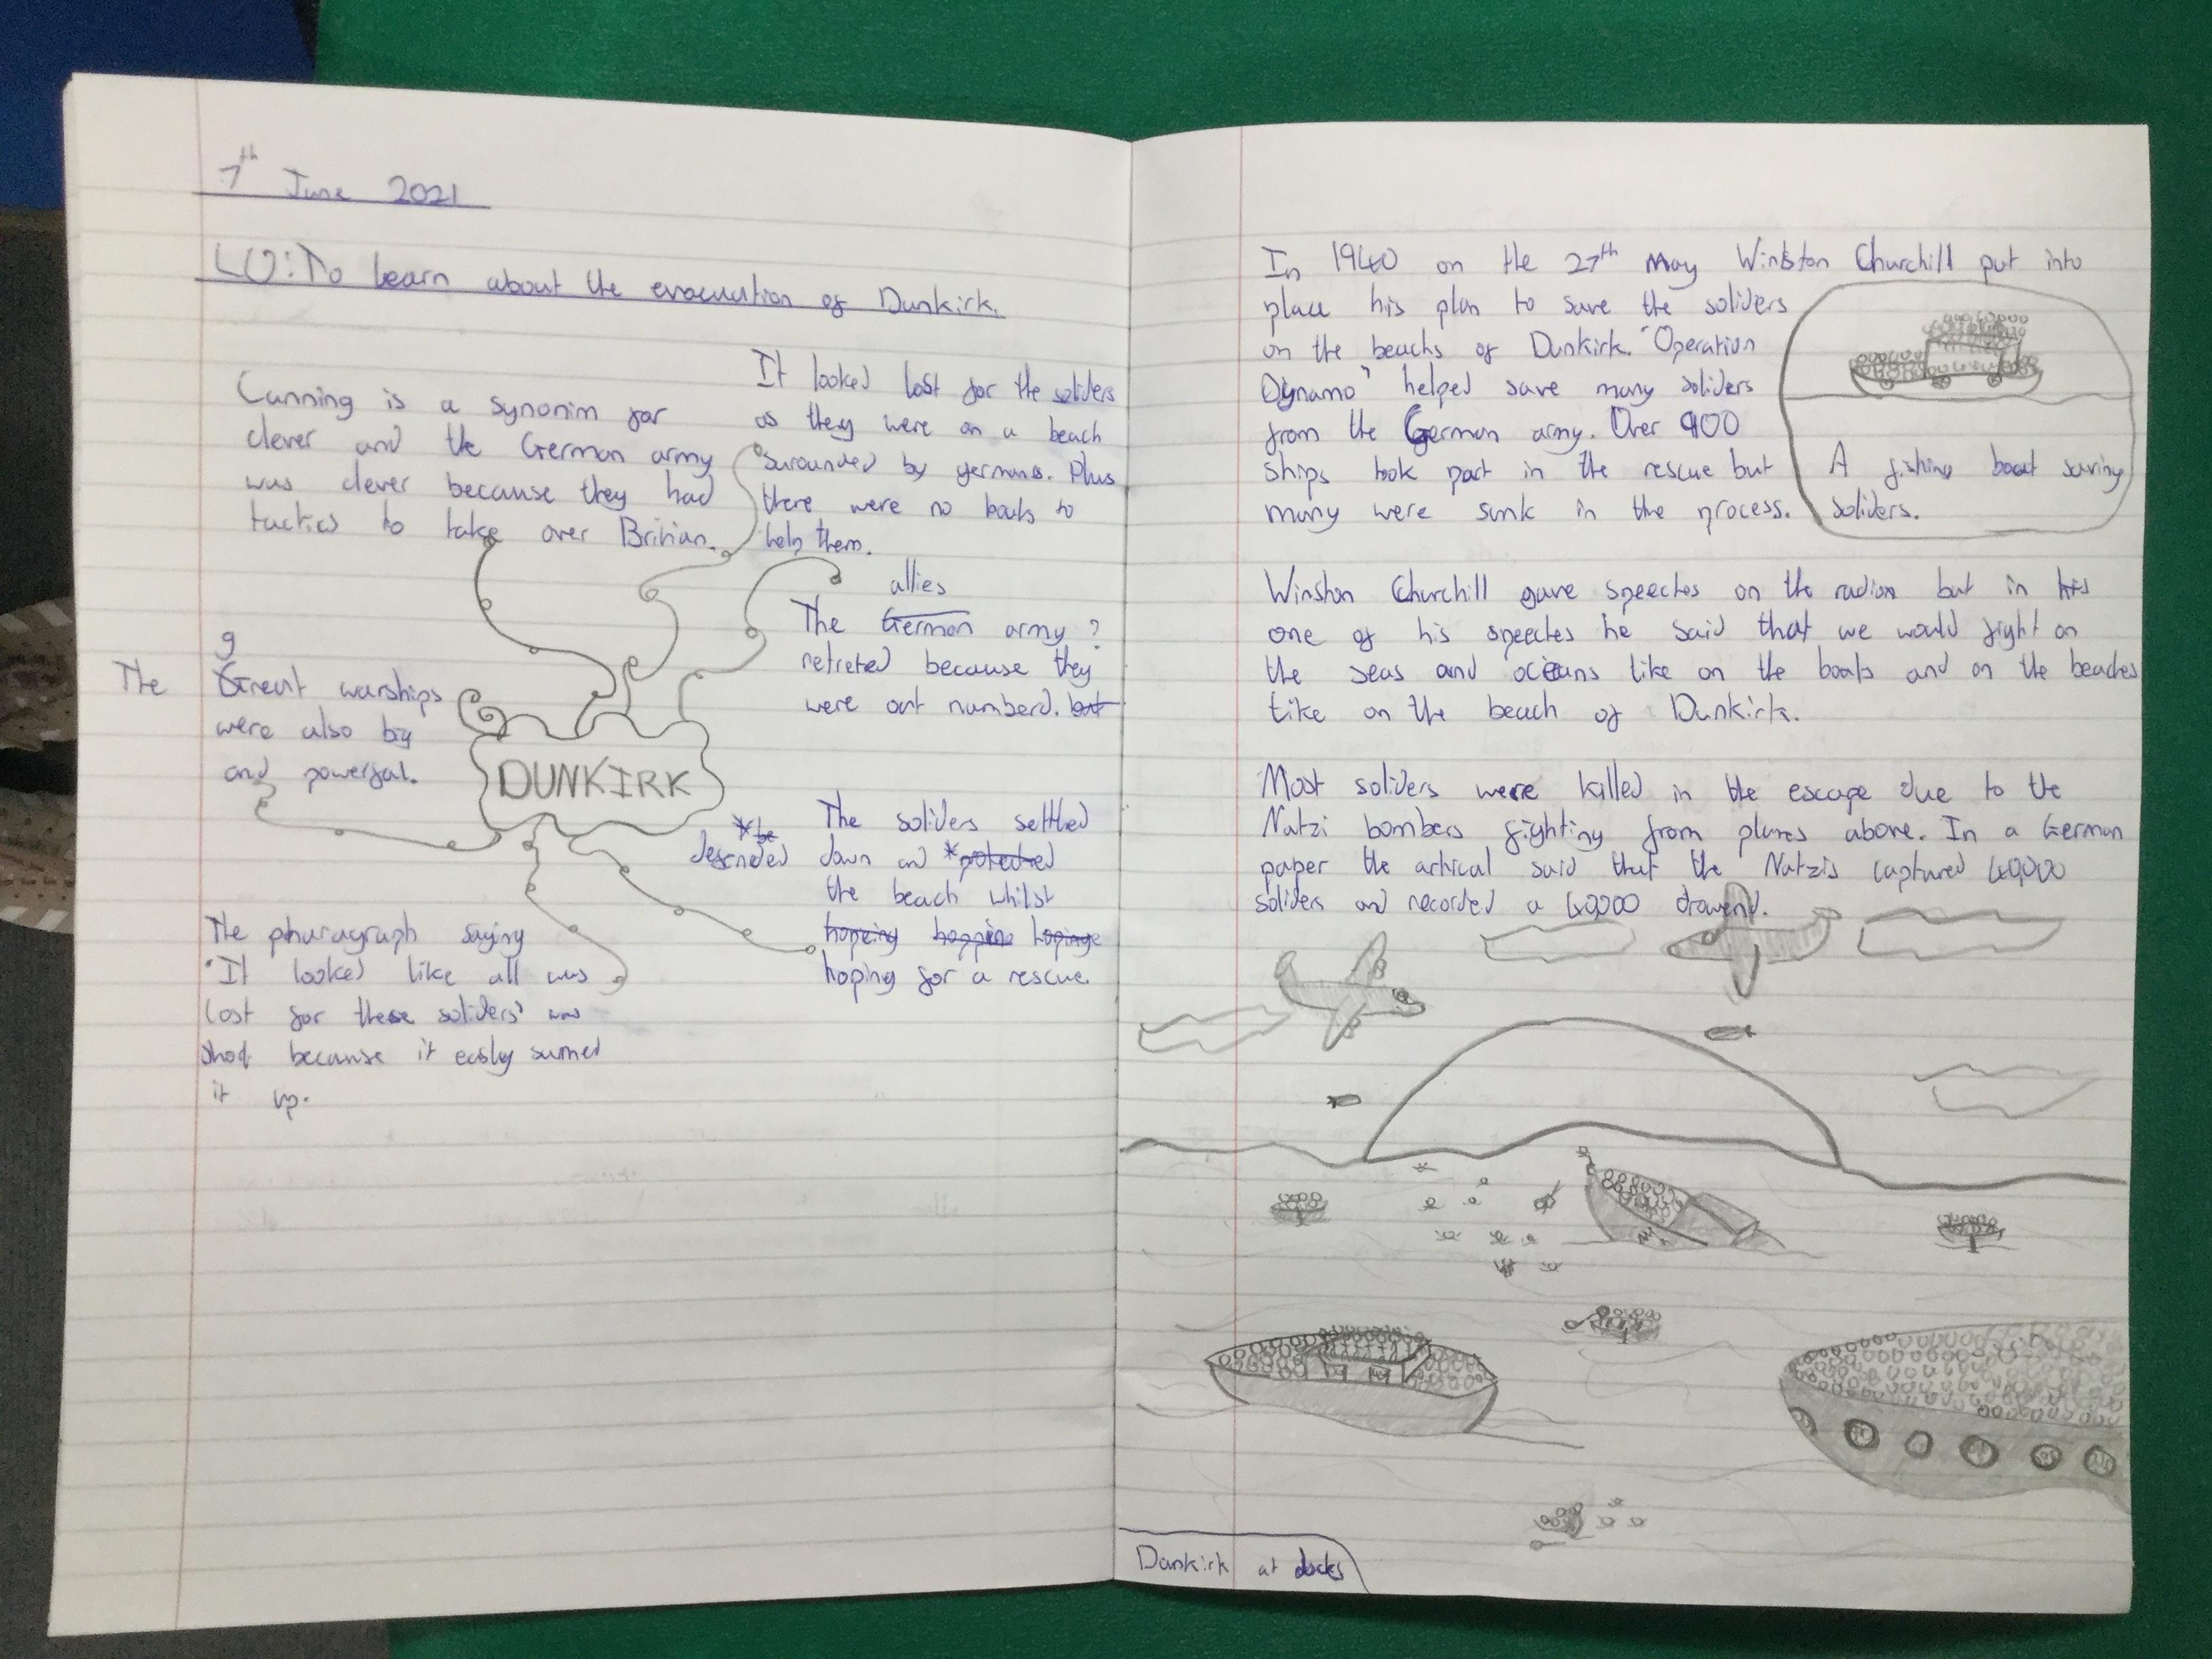 7th June 2021
LO: To learn about the evacuation of Dunkirk.
Cunning is a synonim for
clever and the German army
was clever because they had
tactics to take over Britian.
It looked lost for the soliders
as they were on a beach
surounded by germans. Plus
there were no boats to
help them.
allies
The German army ?
retreted because they
were out numberd. but
g
The Great warships
were also big
and powerful.
DUNKIRK
*be
The soliders settled
desended down and *protected
the beach whilst
hopeing hoppine hopinge
hoping for a rescue.
The pharagraph saying
'It looked like all was
lost for these soliders' was
short because it easly sumed
it up.
In 1940 on the 27th May Winston Churchill put into
place his plan to save the soliders
on the beachs of Dunkirk. "Operation
Dynamo" helped save many soliders
from the German army. Over 900
ships took part in the rescue but
many were sunk in the process.
A fishing boat saving
soliders.
Winston Churchill gave speeches on the radion but in his
one of his speeches he said that we would fight on
the seas and oceans like on the boats and on the beaches
like on the beach of Dunkirk.
Most soliders were killed in the escape due to the
Natzi bombers fighting from planes above. In a German
paper the artical said that the Natzis captured 40,000
soliders and recorded a 40,000 drowend.
Dunkirk at docks